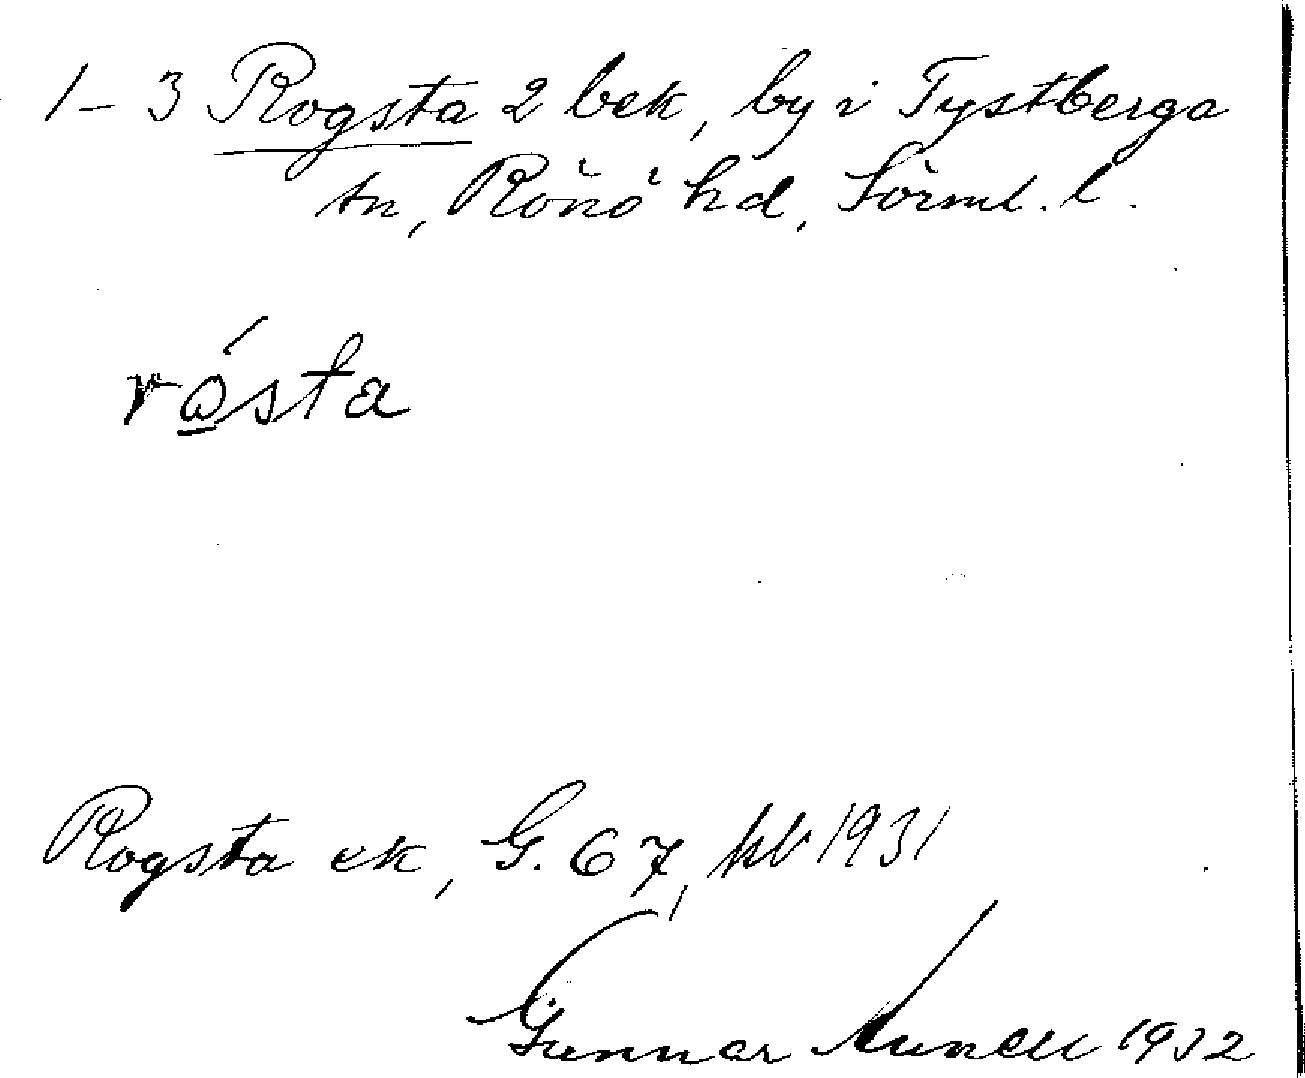 1-3 Rogsta 2 bek, by i Tystberga
sn, Rönö hd, Sörml. l.
rósta
Rogsta ek, G. 67, hb 1931
Gunnar 1932